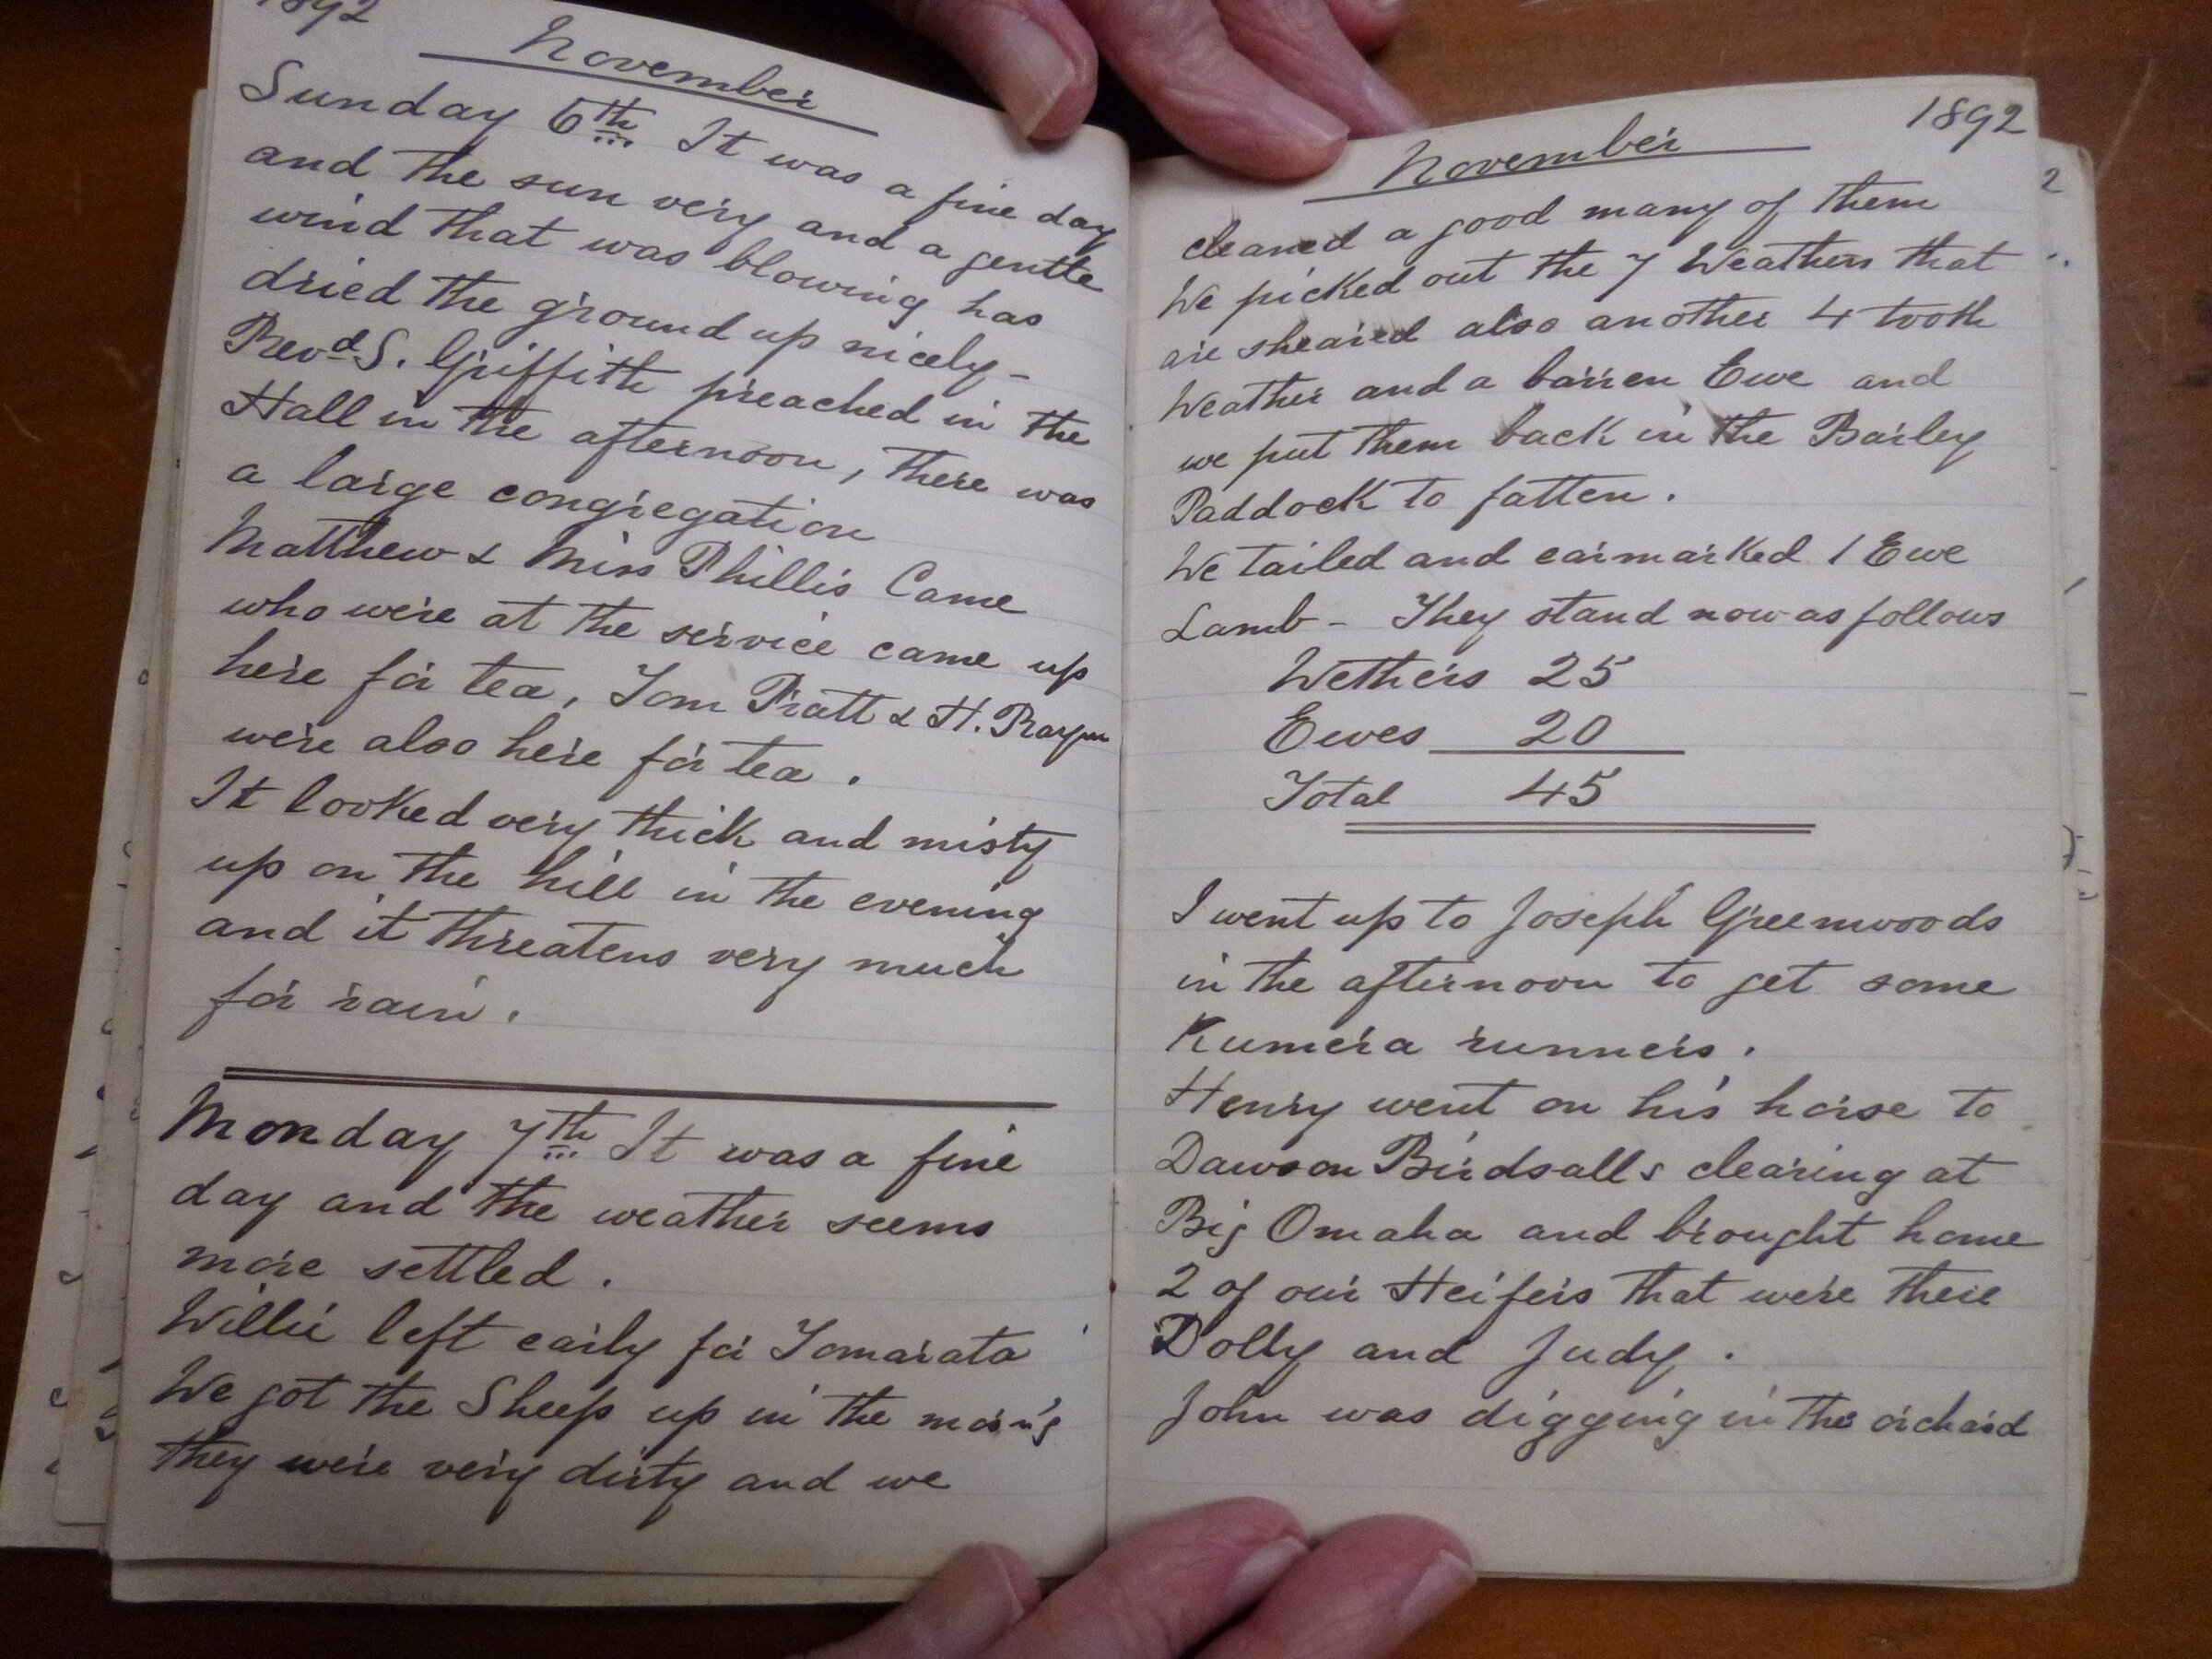 1892
November
Sunday 6th It was a fine day
and the sun very and a gentle
wind that was blowing has
dried the ground up nicely -
Revd S. Griffith preached in the
Hall in the afternoon, there was
a large congregation
Matthew & Miss Phillis Came
who were at the service came up
here for tea, Tom Pratt & H.
were also here for tea.
It looked very thick and misty
up on the hill in the evening
and it threatens very much
for rain.
Monday 7th It was a fine
day and the weather seems
more settled.
Willie left early for Tomarata
We got the Sheep up in the morn'g
they were very dirty and we
November 1892
cleaned a good many of them
We picked out the 7 Weathers that
are sheared also another 4 tooth
Weather and a barren Ewe and
we put them back in the Barley
Paddock to fatten.
We tailed and earmarked 1 Ewe
Lamb - They stand now as follows
Wethers 25
Ewes 20
Total 45
I went up to Joseph Greenwoods
in the afternoon to get some
Kumera runners.
Henry went on his horse to
Dawson Birdsalls clearing at
Big Omaha and brought home
2 of our Heifers that were there
Dolly and Judy.
John was digging in the orchard
2